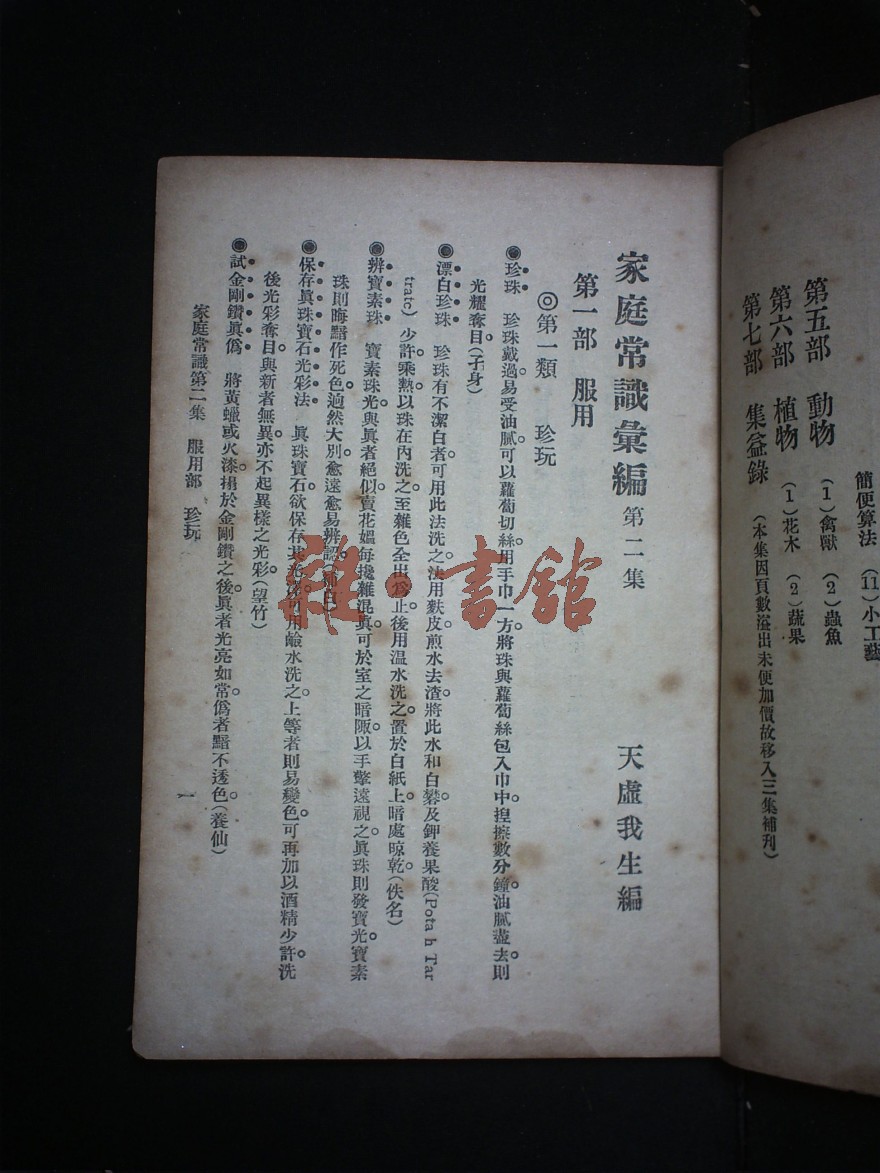 簡便算法 (11)小工藝
第五部 動物 (1)禽獸 (2)蟲魚
第六部 植物 (1)花木 (2)蔬果
第七部 集益錄 (本集因頁數溢出未便加價故移入三集補刋)
家庭常識彙編 第二集 天虛我生編
第一部 服用
◎第一類 珍玩
●珍珠 珍珠戴過易受油膩可以蘿蔔切絲用手巾一方將珠與蘿蔔絲包入巾中。揑擦數分鐘油膩盡去。則
光耀奪目。(孑身)
●漂白珍珠 珍珠有不潔白者可用此法洗之。法用麩皮煎水去渣。將此水和白礬及鉀養果酸(Pota h Tar
tratc)少許。乘熱以珠在內洗之。至雜色全出爲止。後用温水洗之。置於白紙上。暗處晾乾。(佚名)
●辨寶素珠 寶素珠光與眞者絕似。賣花媼每攙雜混眞。可於室之暗陬以手擎遠視之。眞珠則發寶光。寶素
珠則晦黯作死色。逈然大別。愈遠愈易辨認。
●保存眞珠寶石光彩法 眞珠寶石欲保存其光彩可用鹼水洗之。上等者則易變色。可再加以酒精少許。洗
後光彩奪目。與新者無異。亦不起異樣之光彩。(望竹)
●試金剛鑽眞僞 將黃蠟或火漆搨於金剛鑽之後。眞者光亮如常。僞者黯不透色。(養仙)
家庭常識第二集 服用部 珍玩 一
雜·書館